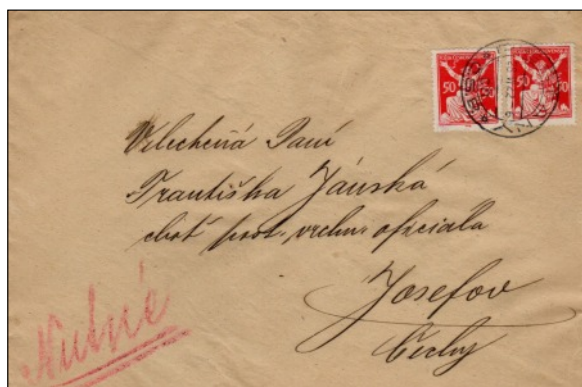 50 50 50 50
Velectěná Paní
Františka Jánská
choť post. vrchn. oficiála
Josefov
Čechy
Nutné